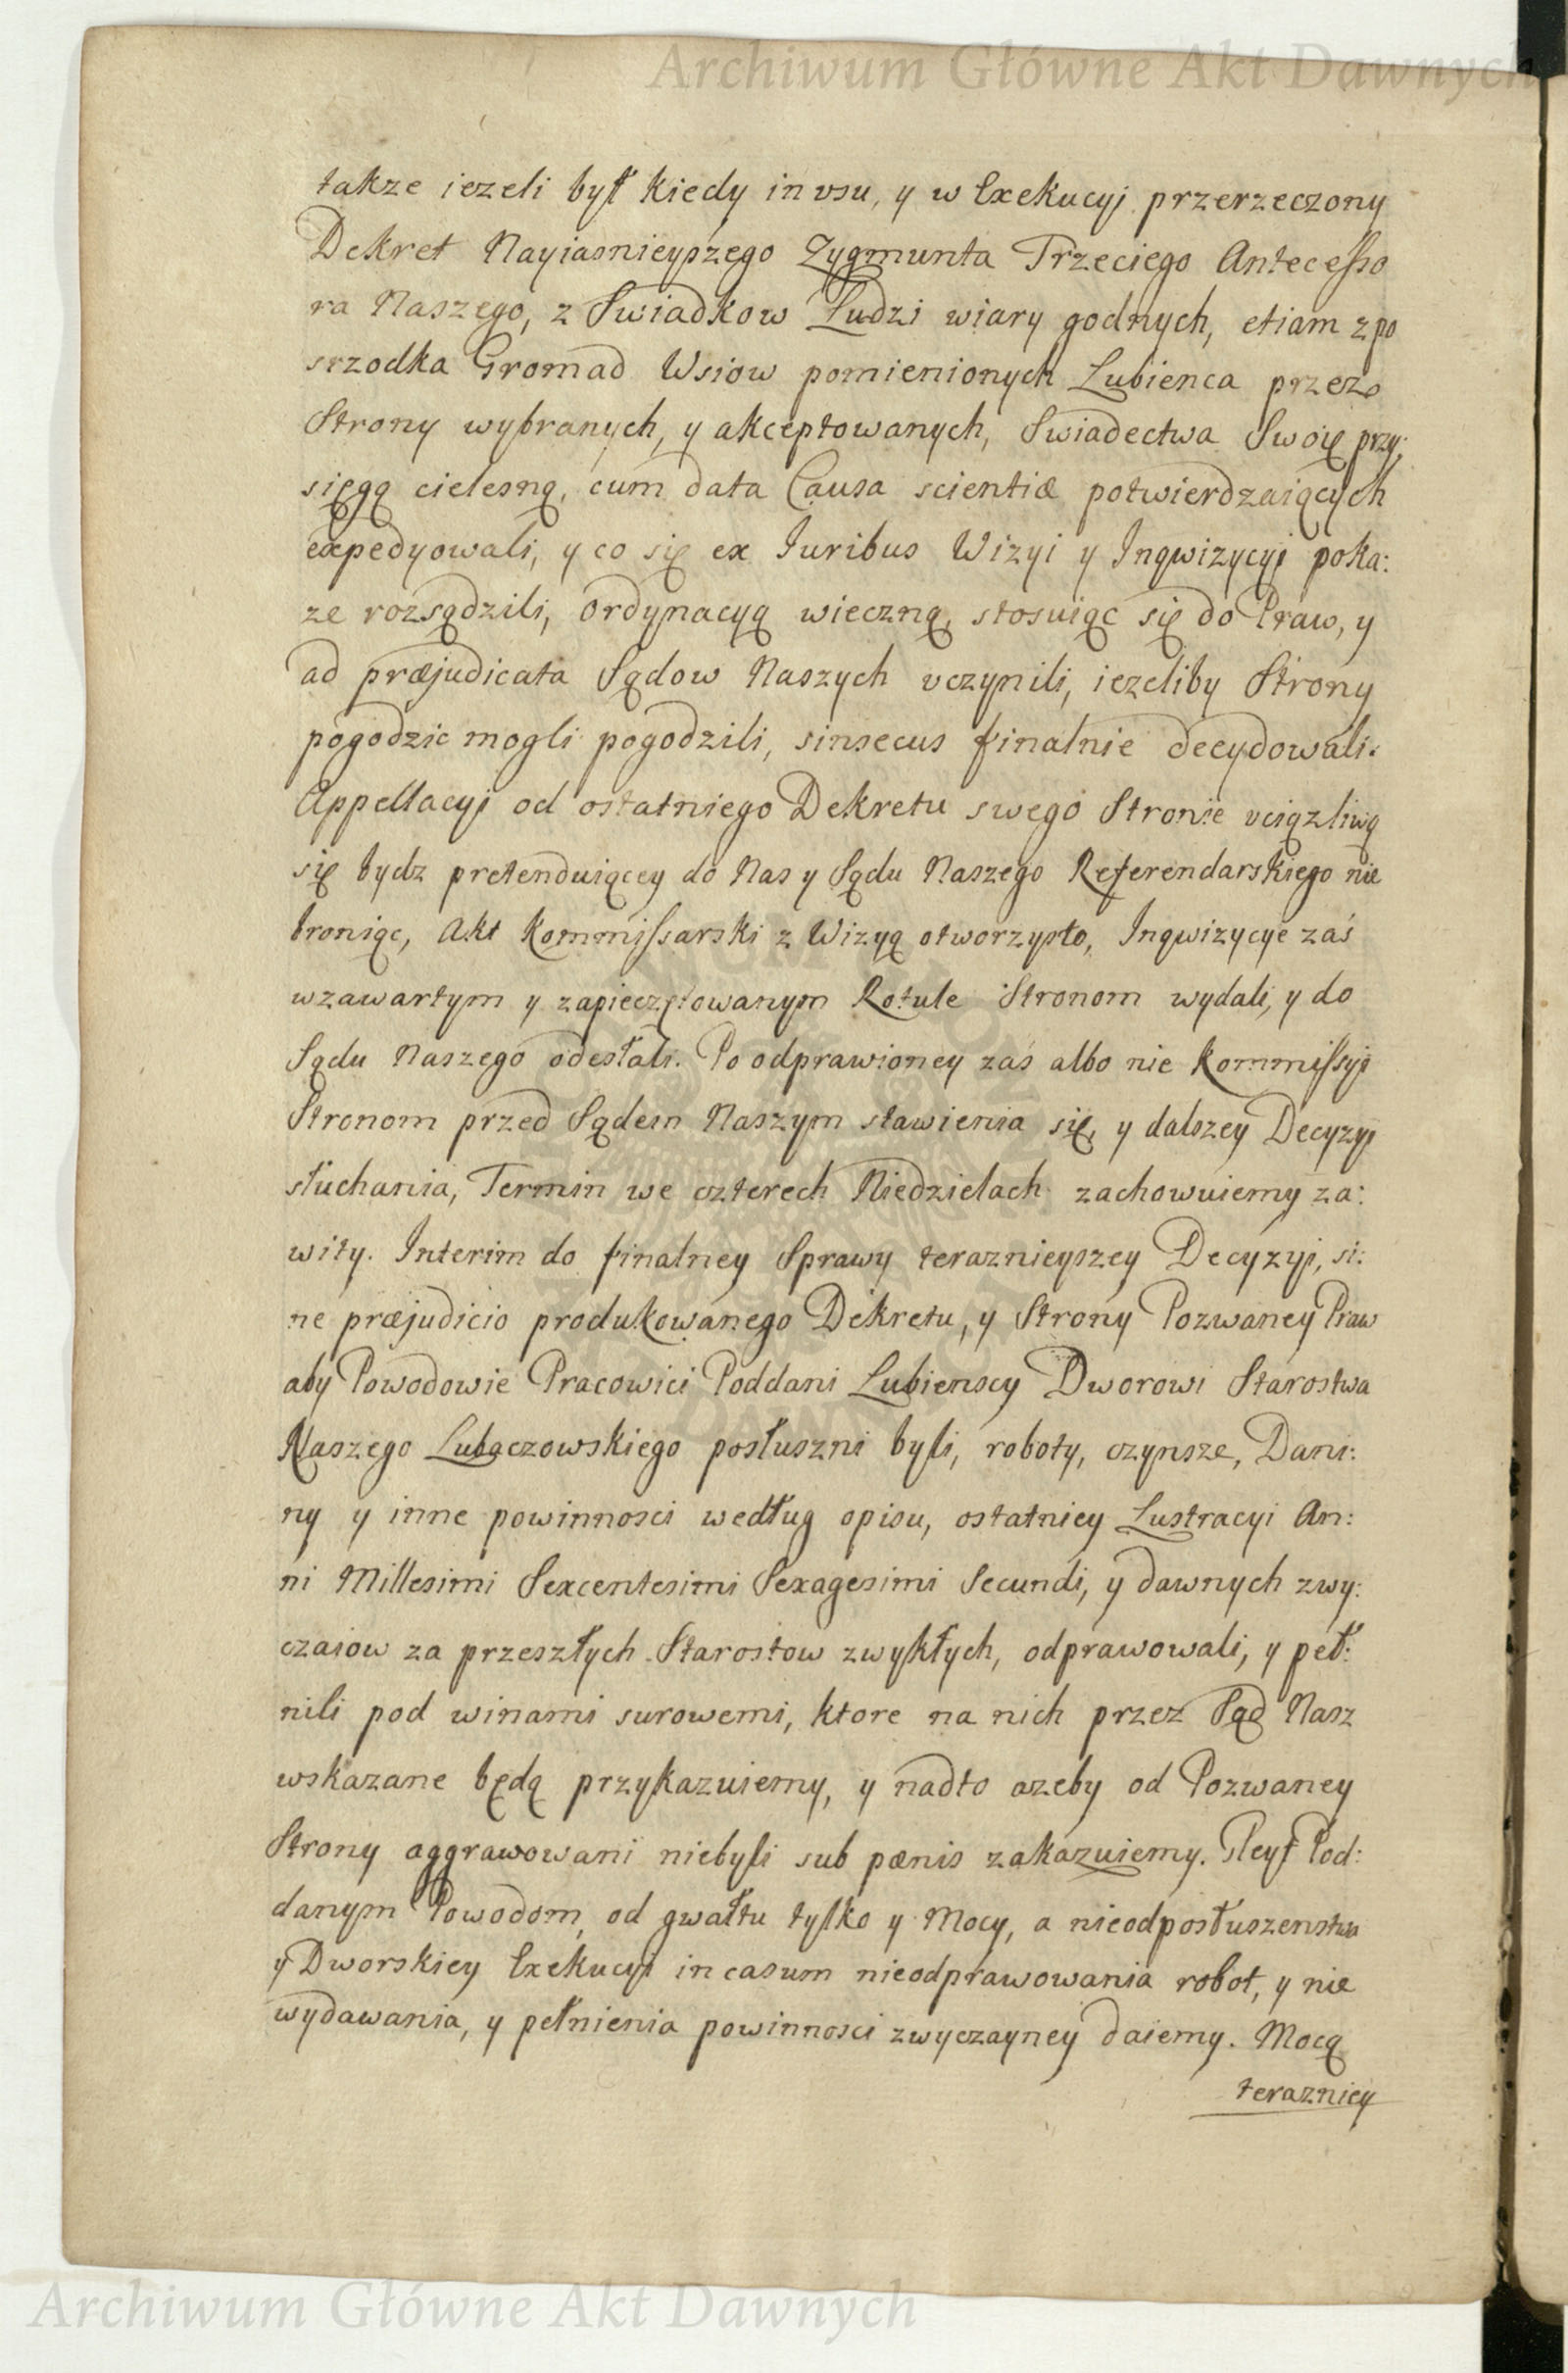 Archiwum Główne Akt Dawnych
takze iezeli był kiedy in vsu, y w Exekucyi przerzeczony
Dekret Nayiasnieyszego Zygmunta Trzeciego Antecesso
ra Naszego, z Swiadkow Ludzi wiary godnych, etiam z po
srzodka Gromad Wsiow pomienionych Lubienca przez
Strony wybranych, y akceptowanych, Swiadectwa Swoię przy:
sięgą cielesną, cum data Causa scientiæ potwierdzaiących
expedyowali, y co się ex Iuribus Wizyi y Inqwizycyi poka:
ze rozsądzili, Ordynacyą wieczną, stosuiąc się do Praw, y
ad præjudicata Sądow Naszych vczynili, iezeliby Strony
pogodzic mogli pogodzili, sinsecus finalnie decydowali.
Appellacyi od ostatniego Dekretu swego Stronie vciązliwą
się bydz pretenduiącey do Nas y Sądu Naszego Referendarskiego nie
broniąc, Akt Kommissarski z Wizyą otworzysto, Inqwizycye zaś
w zawartym y zapieczętowanym Rotule Stronom wydali, y do
Sądu Naszego odesłali. Po odprawioney zaś albo nie Kommissyi
Stronom przed Sądem Naszym stawienia się, y dalszey Decyzyi
słuchania, Termin we czterech Niedzielach zachowuiemy za:
wity. Interim do finalney Sprawy teraznieyszey Decyzyi, si:
ne præjudicio produkowanego Dekretu, y Strony Pozwaney Praw
aby Powodowie Pracowici Poddani Lubienscy Dworowi Starostwa
Naszego Lubaczowskiego posłuszni byli, roboty, czynsze, Dani:
ny y inne powinnosci według opisu, ostatniey Lustracyi An:
ni Millesimi Sexcentesimi Sexagesimi Secundi, y dawnych zwy:
czaiow za przeszłych Starostow zwykłych, odprawowali, y peł:
nili pod winami surowemi, ktore na nich przez Sąd Nasz
wskazane będą przykazuiemy, y nadto azeby od Pozwaney
Strony aggrawowani niebyli sub pœnis zakazuiemy. Gleyt Pod:
danym Powodom, od gwałtu tylko y Mocy, a nieodposłuszenstwa
y Dworskiey Exekucyi in casum nieodprawowania robot, y nie
wydawania, y pełnienia powinnosci zwyczayney daiemy. Mocą
terazniey
Archiwum Główne Akt Dawnych